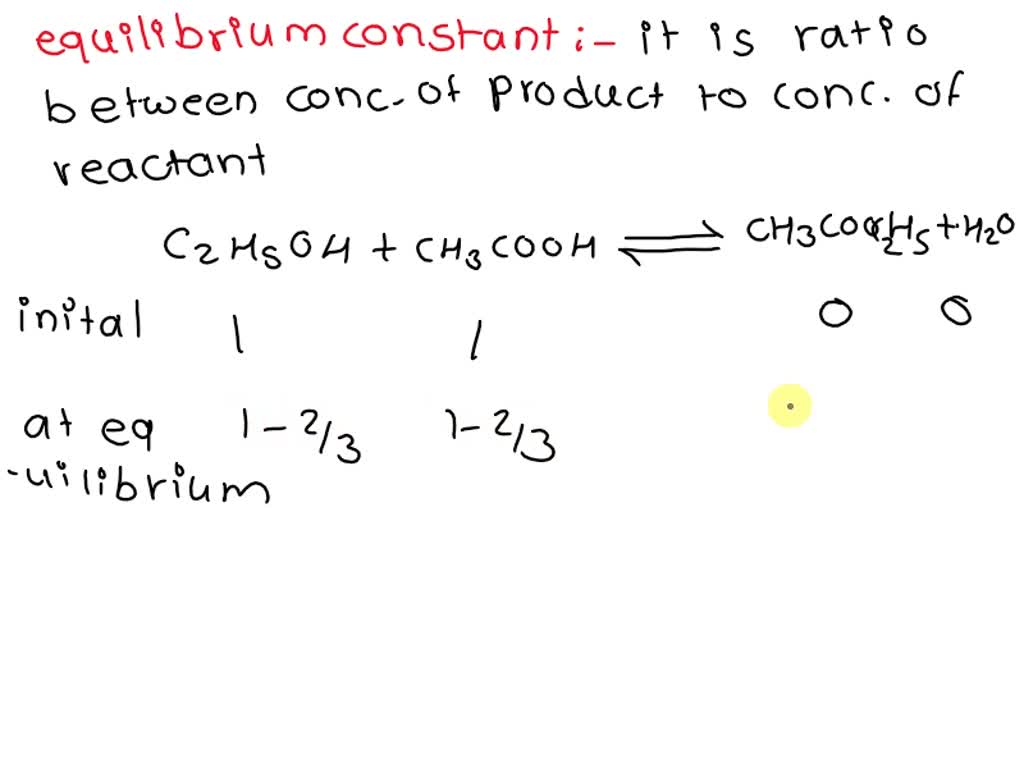 equilibrium constant :- it is ratio
between conc. of product to conc. of
reactant
C2H5OH + CH3COOH ⇌ CH3COOC2H5 + H2O
inital 1 1 0 0
at eq 1 - 2/3 1 - 2/3
-uilibrium